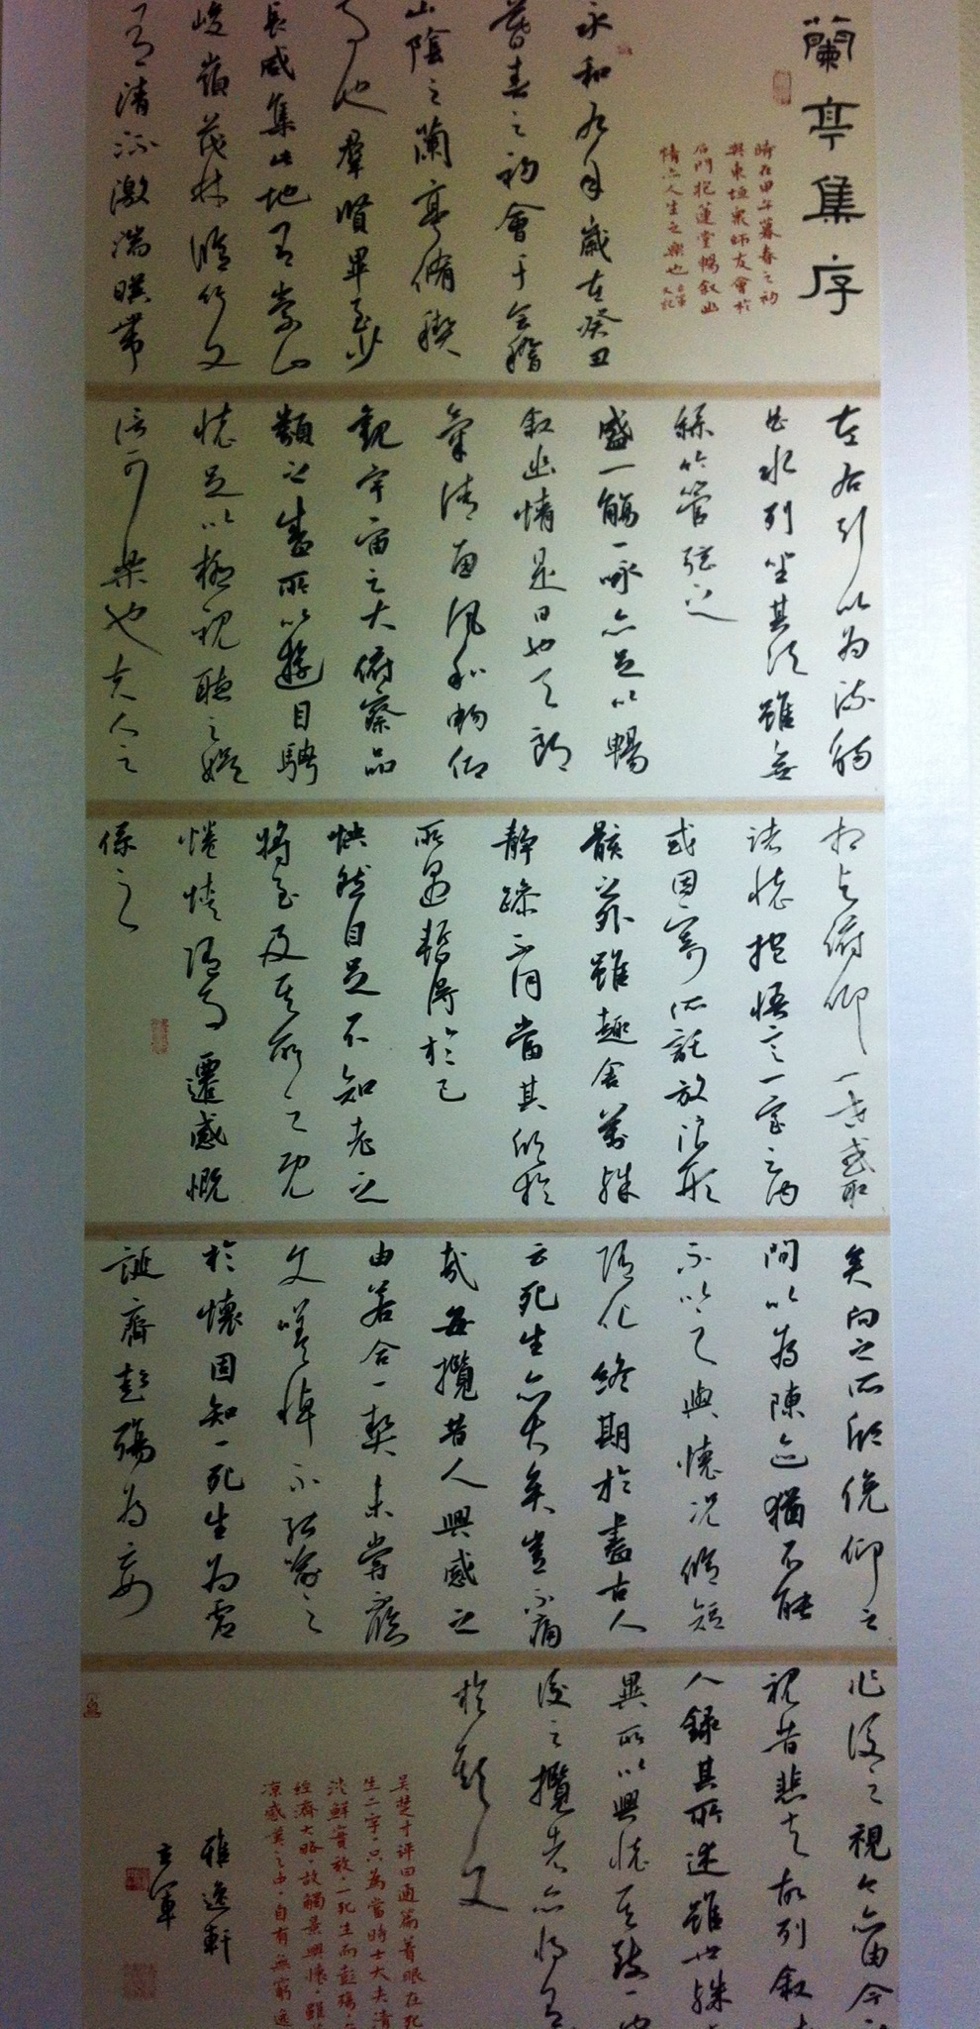 蘭亭集序
時在甲午暮春之初
與東垣眾師友會於
石門挹蓮堂暢敘幽
情亦人生之樂也
永和九年歲在癸丑
暮春之初會于會稽
山陰之蘭亭脩稧
事也群賢畢至少
長咸集此地有崇山
峻嶺茂林脩竹又
有清流激湍暎帶
左右引以為流觴
曲水列坐其次雖無
絲竹管弦之
盛一觴一詠亦足以暢
敘幽情是日也天朗
氣清惠風和暢仰
觀宇宙之大俯察品
類之盛所以遊目騁
懷足以極視聽之娛
信可樂也夫人之
相與俯仰一世或取
諸懷抱悟言一室之內
或因寄所託放浪形
骸之外雖趣舍萬殊
靜躁不同當其欣於
所遇暫得於己
快然自足不知老之
將至及其所之既
惓情隨事遷感慨
係之
矣向之所欣俛仰之
間以為陳迹猶不能
不以之興懷況脩短
隨化終期於盡古人
云死生亦大矣豈不痛
哉每攬昔人興感之
由若合一契未嘗臨
文嗟悼不能喻之
於懷固知一死生為虛
誕齊彭殤為妄
作後之視今亦由今
視昔悲夫故列敘
人錄其所述雖世殊
異所以興懷其致一也
後之攬者亦將有
於斯文
吳楚才評曰通篇著眼在死
生二字只為當時士大夫清
談鮮實效一死生而彭殤
經濟大略故觸景興懷雖
涼感嘆之中自有無窮逸
雅逸軒
玄軍